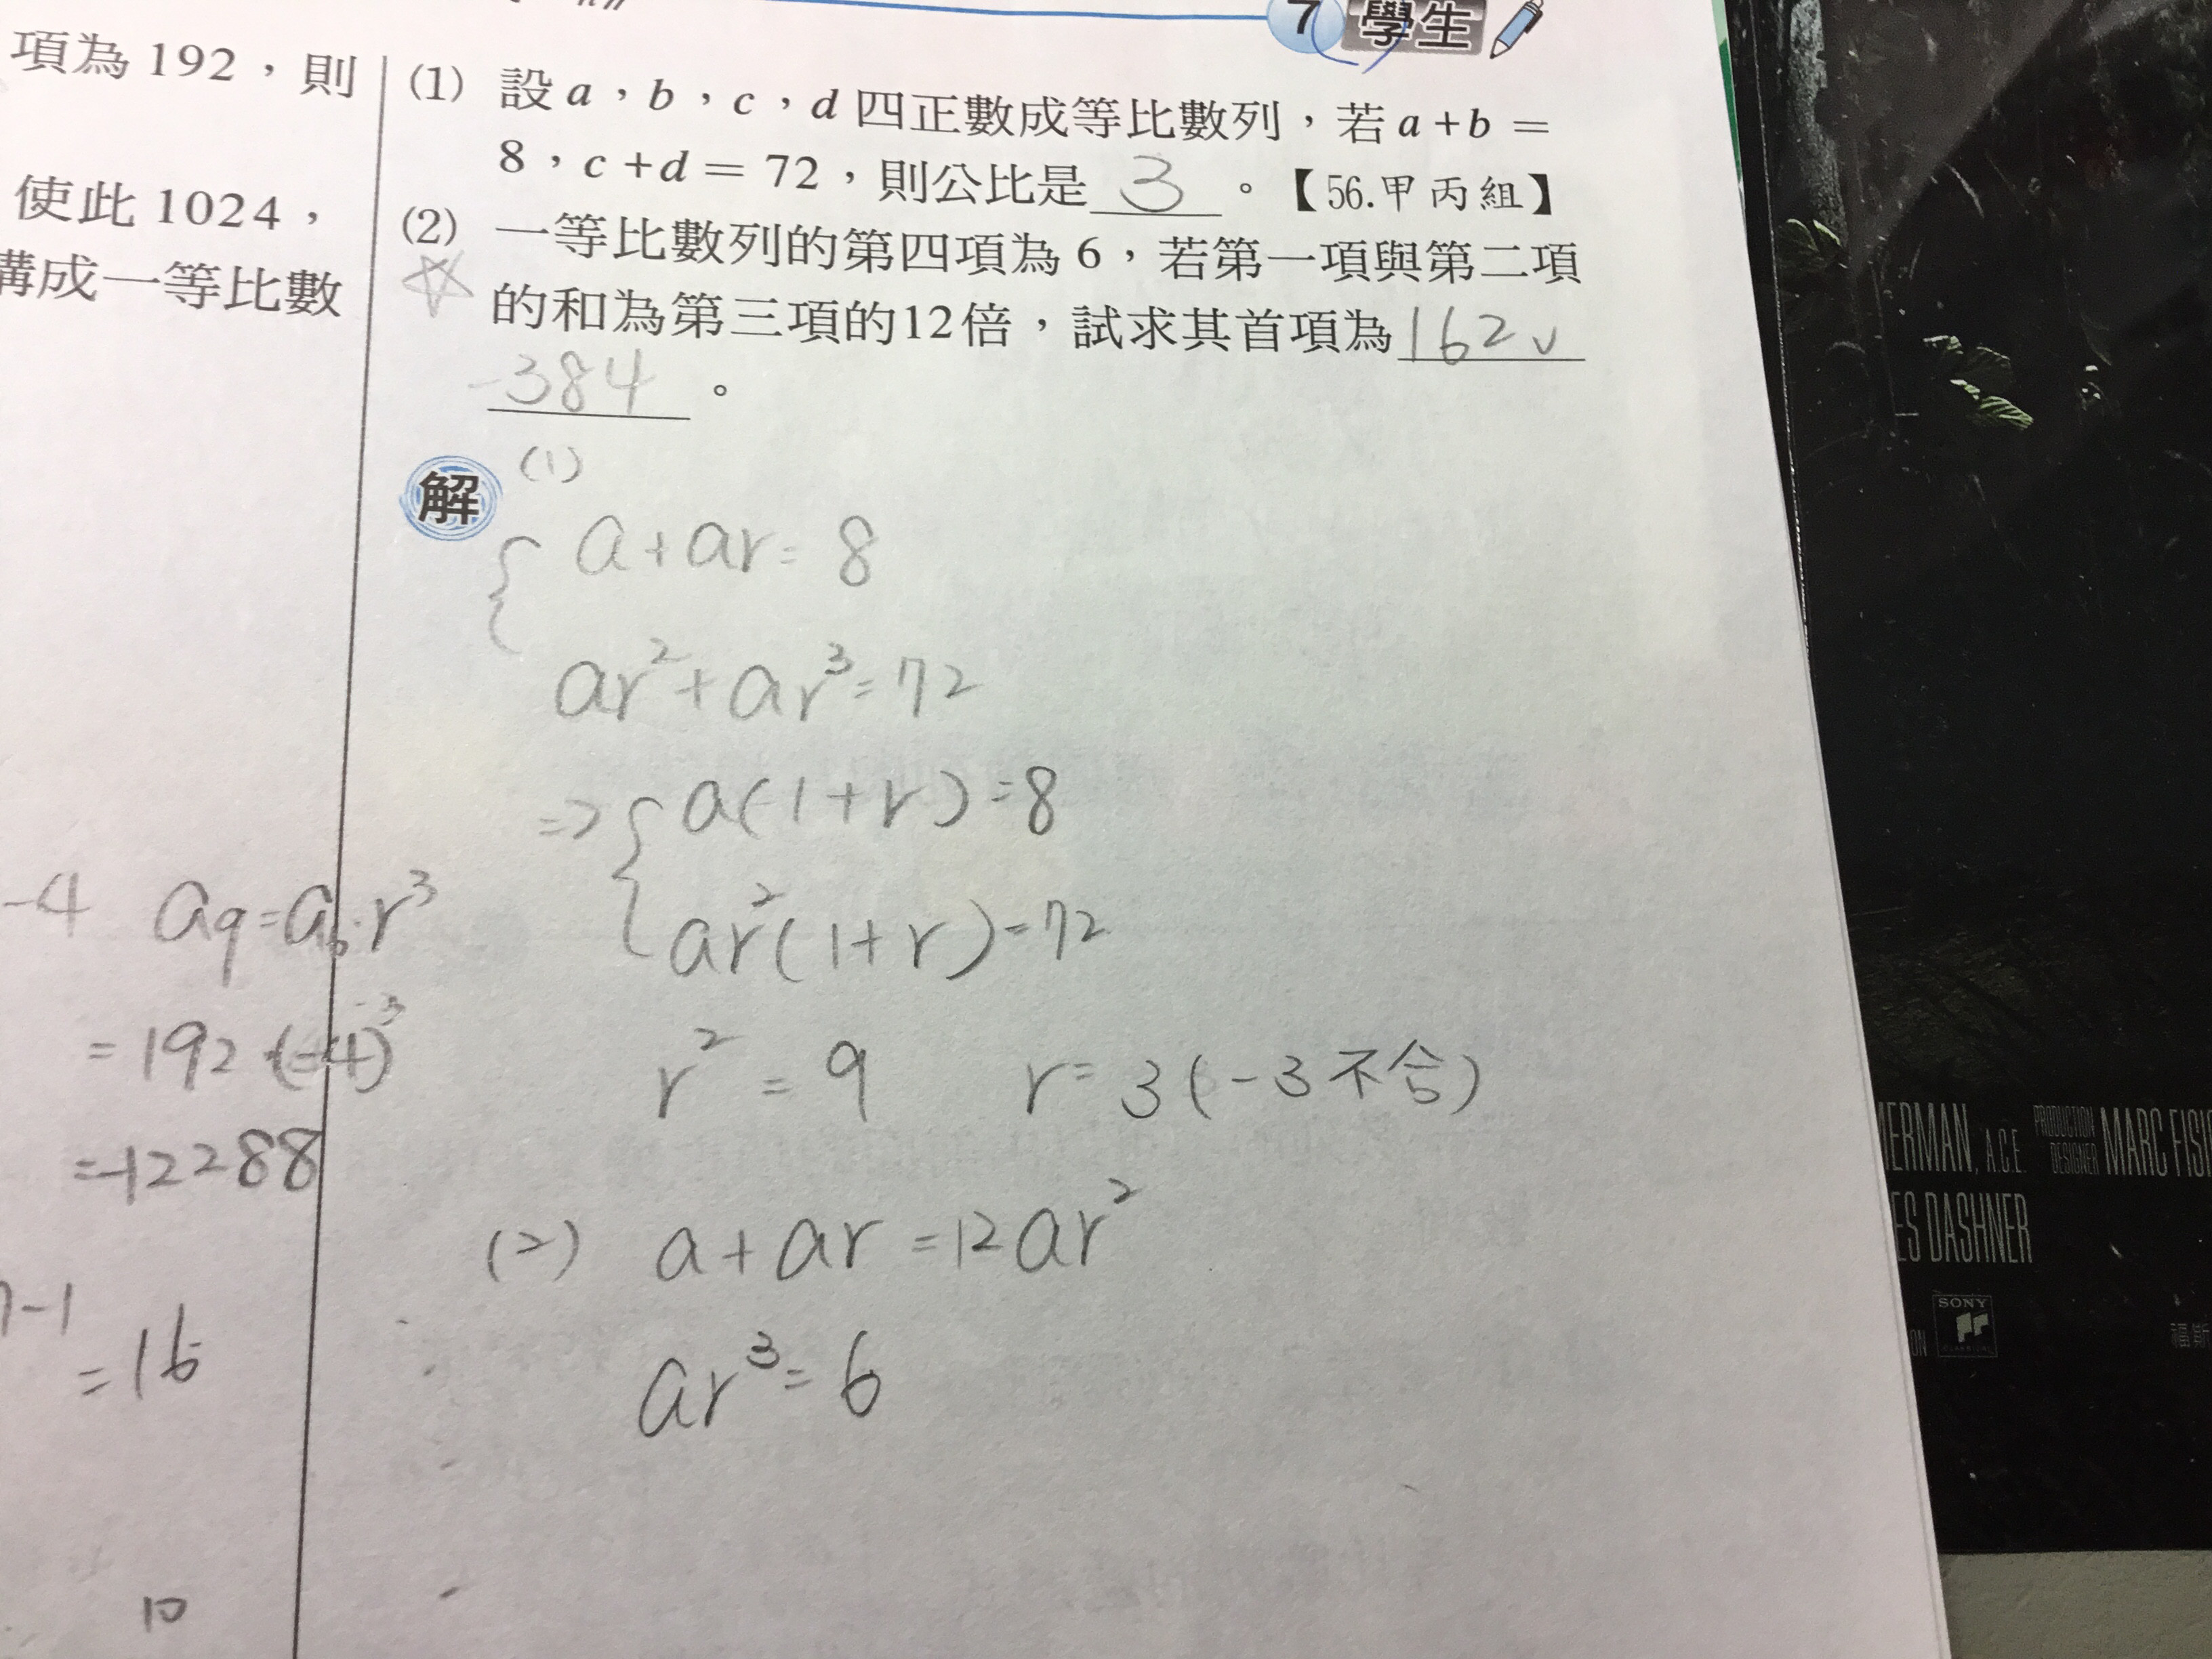 7 學生
項為 192，則
使此 1024，
構成一等比數
-4 a₉=a₆·r³
=192·(-4)³
=-12288
n-1
=16
(1) 設 a，b，c，d 四正數成等比數列，若 a+b=
8，c+d=72，則公比是 3 。【56.甲丙組】
(2) 一等比數列的第四項為 6，若第一項與第二項
☆ 的和為第三項的12倍，試求其首項為 162 ∨
-384 。
解 (1)
{ a+ar=8
ar²+ar³=72
=> { a(1+r)=8
ar²(1+r)=72
r²=9 r=3(-3不合)
(2) a+ar=12ar²
ar³=6
ERMAN, A.C.E. PRODUCTION DESIGNER MARC FIS
ES DASHNER
SONY
ON